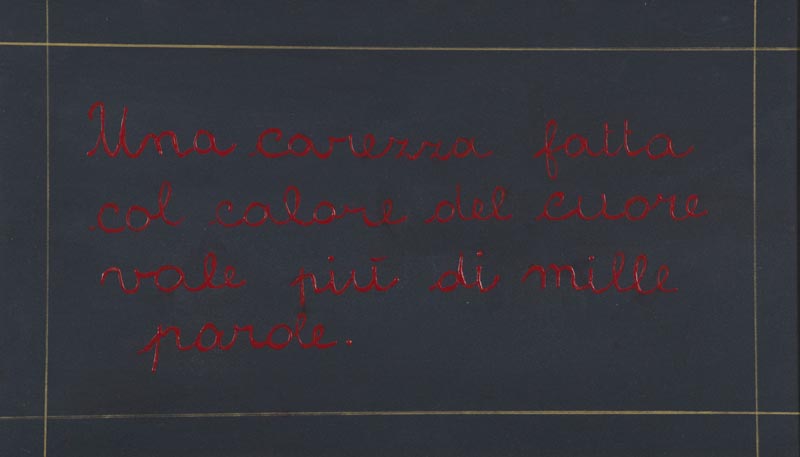 Una carezza fatta
col calore del cuore
vale più di mille
parole.